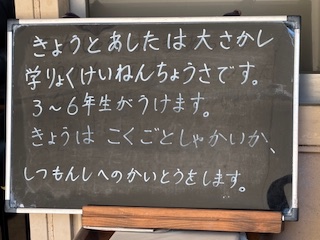 きょうとあしたは大さかし
学りょくけいねんちょうさです。
3～6年生がうけます。
きょうは こくごとしゃかいか、
しつもんしへのかいとうをします。